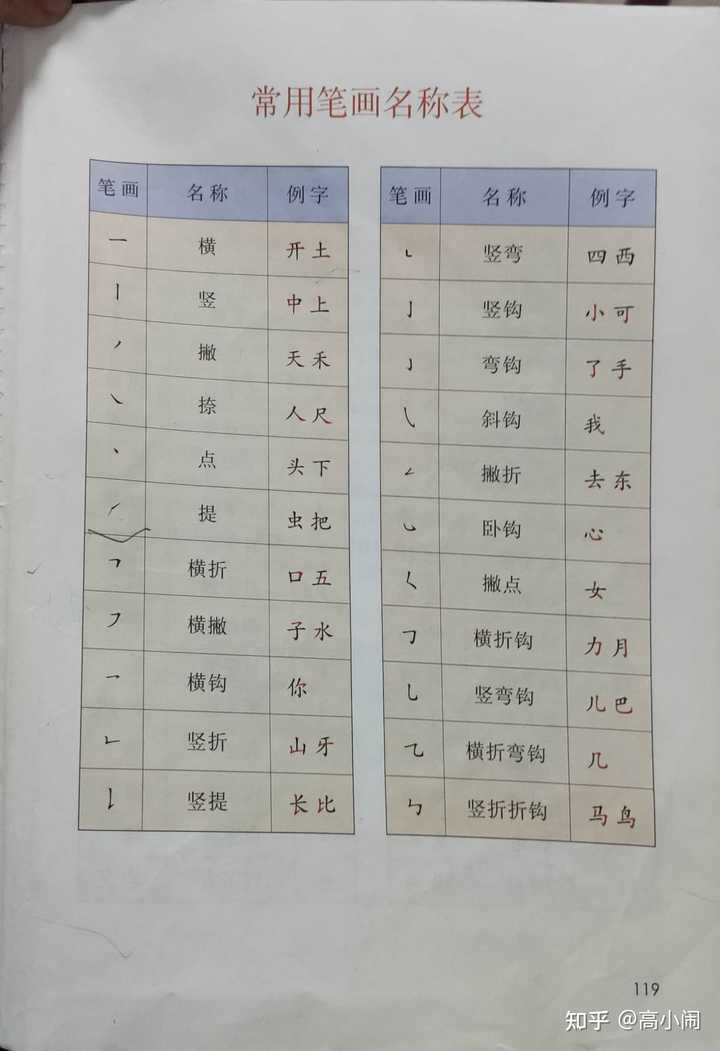 常用笔画名称表
笔画 名称 例字
一 横 开土
丨 竖 中上
丿 撇 天禾
㇏ 捺 人尺
丶 点 头下
㇀ 提 虫把
𠃍 横折 口五
㇇ 横撇 子水
乛 横钩 你
𠃊 竖折 山牙
𠄌 竖提 长比
笔画 名称 例字
㇄ 竖弯 四西
亅 竖钩 小可
㇁ 弯钩 了手
㇂ 斜钩 我
𠃋 撇折 去东
㇃ 卧钩 心
𡿨 撇点 女
𠃌 横折钩 力月
乚 竖弯钩 儿巴
㇈ 横折弯钩 几
㇉ 竖折折钩 马鸟
119
知乎 @高小闹